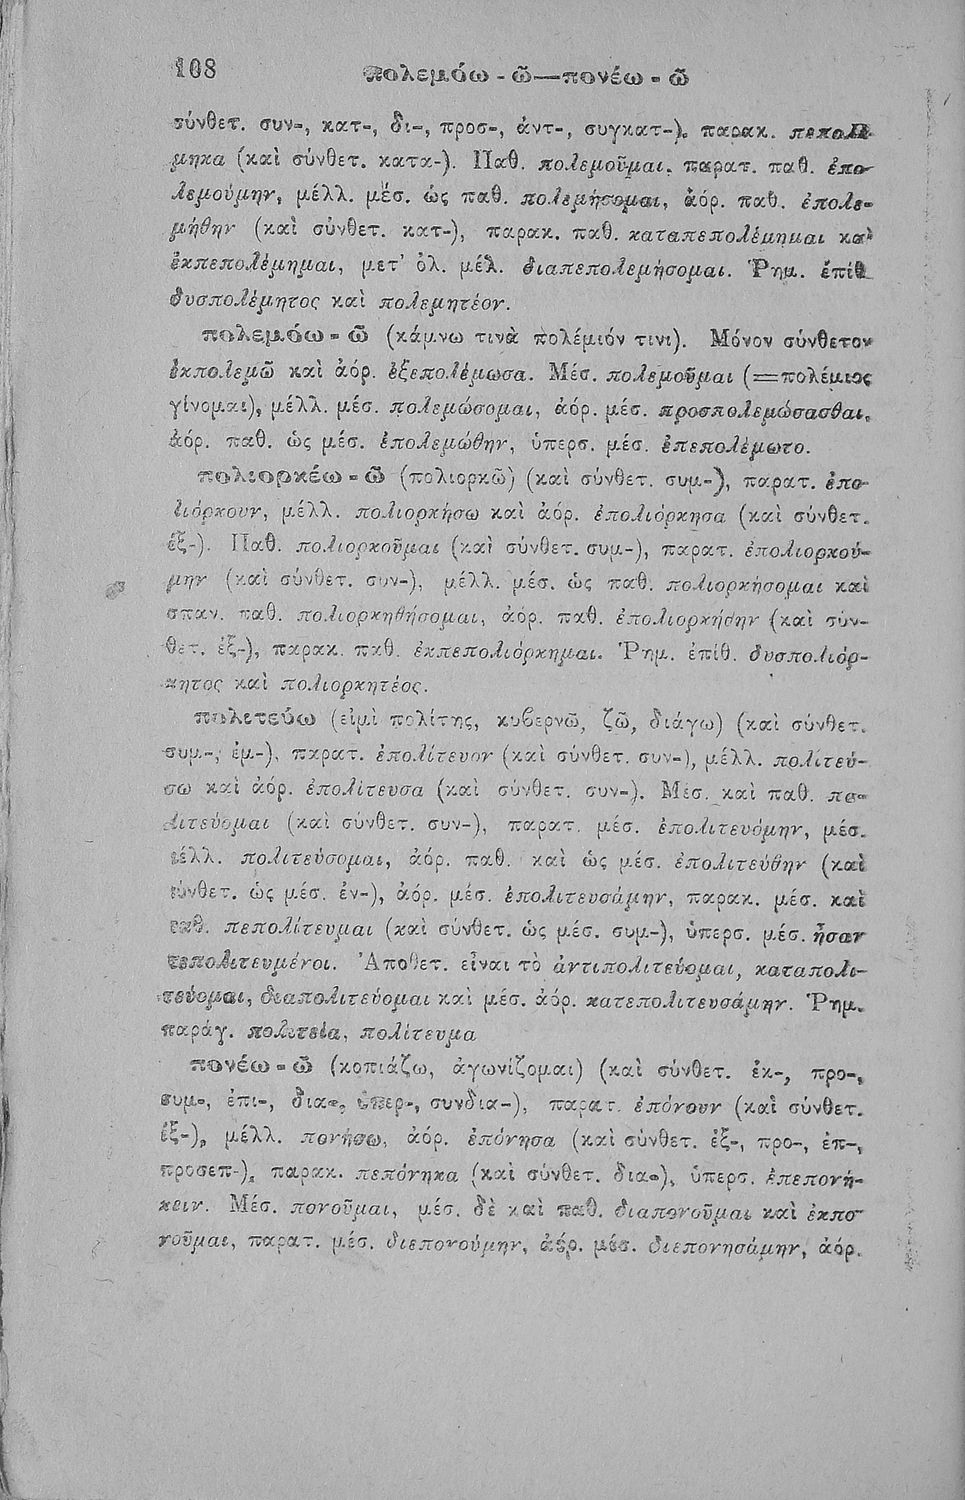 108
πολεμόω - ῶ—πονέω - ῶ
σύνθετ. συν-, κατ-, δι-, προσ-, ἀντ-, συγκατ-), παρακ. πεπολέ-
μηκα (καὶ σύνθετ. κατα-). Παθ. πολεμοῦμαι, παρατ. παθ. ἐπο-
λεμούμην, μέλλ. μέσ. ὡς παθ. πολεμήσομαι, ἀόρ. παθ. ἐπολε-
μήθην (καὶ σύνθετ. κατ-), παρακ. παθ. καταπεπολέμημαι καὶ
ἐκπεπολέμημαι, μετ' ὀλ. μέλ. διαπεπολεμήσομαι. Ῥημ. ἐπίθ.
δυσπολέμητος καὶ πολεμητέον.
πολεμόω - ῶ (κάμνω τινὰ πολέμιόν τινι). Μόνον σύνθετον
ἐκπολεμῶ καὶ ἀόρ. ἐξεπολέμωσα. Μέσ. πολεμοῦμαι (=πολέμιος
γίνομαι), μέλλ. μέσ. πολεμώσομαι, ἀόρ. μέσ. προσπολεμώσασθαι,
ἀόρ. παθ. ὡς μέσ. ἐπολεμώθην, ὑπερσ. μέσ. ἐπεπολέμωτο.
πολιορκέω - ῶ (πολιορκῶ) (καὶ σύνθετ. συμ-), παρατ. ἐπο-
λιόρκουν, μέλλ. πολιορκήσω καὶ ἀόρ. ἐπολιόρκησα (καὶ σύνθετ.
ἐξ-). Παθ. πολιορκοῦμαι (καὶ σύνθετ. συμ-), παρατ. ἐπολιορκού-
μην (καὶ σύνθετ. συν-), μέλλ. μέσ. ὡς παθ. πολιορκήσομαι καὶ
σπαν. παθ. πολιορκηθήσομαι, ἀόρ. παθ. ἐπολιορκήθην (καὶ σύν-
θετ. ἐξ-), παρακ. παθ. ἐκπεπολιόρκημαι. Ῥημ. ἐπίθ. δυσπολιόρ-
κητος καὶ πολιορκητέος.
πολιτεύω (εἰμὶ πολίτης, κυβερνῶ, ζῶ, διάγω) (καὶ σύνθετ.
συμ-, ἐμ-), παρατ. ἐπολίτευον (καὶ σύνθετ. συν-), μέλλ. πολιτεύ-
σω καὶ ἀόρ. ἐπολίτευσα (καὶ σύνθετ. συν-). Μέσ. καὶ παθ. πο-
λιτεύομαι (καὶ σύνθετ. συν-), παρατ. μέσ. ἐπολιτευόμην, μέσ.
μέλλ. πολιτεύσομαι, ἀόρ. παθ. καὶ ὡς μέσ. ἐπολιτεύθην (καὶ
σύνθετ. ὡς μέσ. ἐν-), ἀόρ. μέσ. ἐπολιτευσάμην, παρακ. μέσ. καὶ
παθ. πεπολίτευμαι (καὶ σύνθετ. ὡς μέσ. συμ-), ὑπερσ. μέσ. ἦσαν
πεπολιτευμένοι. Ἀποθετ. εἶναι τὸ ἀντιπολιτεύομαι, καταπολι-
τεύομαι, διαπολιτεύομαι καὶ μέσ. ἀόρ. κατεπολιτευσάμην. Ῥημ.
παράγ. πολιτεία, πολίτευμα
πονέω - ῶ (κοπιάζω, ἀγωνίζομαι) (καὶ σύνθετ. ἐκ-, προ-,
συμ-, ἐπι-, δια-, ὑπερ-, συνδια-), παρατ. ἐπόνουν (καὶ σύνθετ.
ἐξ-), μέλλ. πονήσω, ἀόρ. ἐπόνησα (καὶ σύνθετ. ἐξ-, προ-, ἐπ-,
προσεπ-), παρακ. πεπόνηκα (καὶ σύνθετ. δια-), ὑπερσ. ἐπεπονή-
κειν. Μέσ. πονοῦμαι, μέσ. δὲ καὶ παθ. διαπονοῦμαι καὶ ἐκπο-
νοῦμαι, παρατ. μέσ. διεπονούμην, ἀόρ. μέσ. διεπονησάμην, ἀόρ.